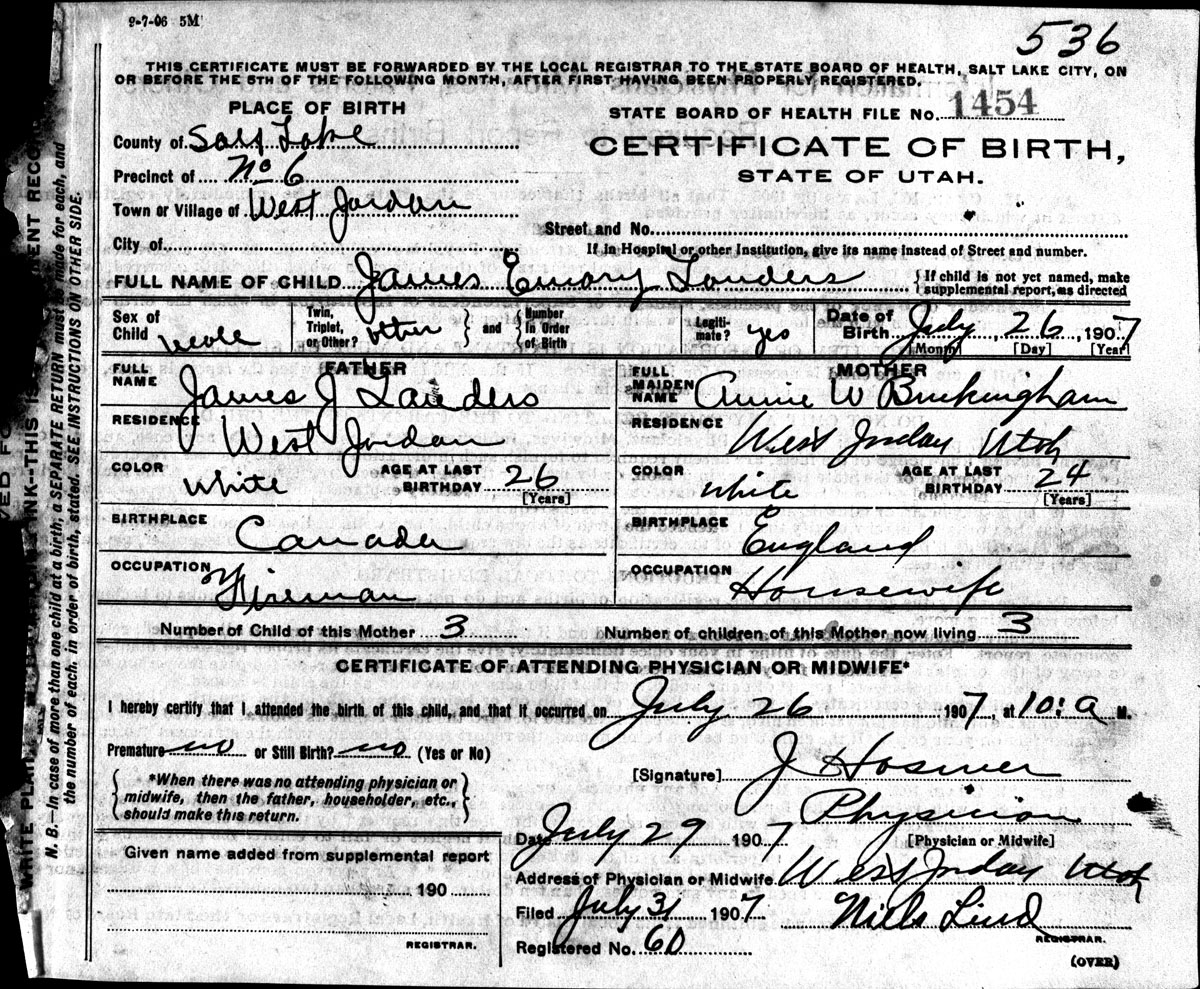 9-7-06 5M
536
THIS CERTIFICATE MUST BE FORWARDED BY THE LOCAL REGISTRAR TO THE STATE BOARD OF HEALTH, SALT LAKE CITY, ON
OR BEFORE THE 5TH OF THE FOLLOWING MONTH, AFTER FIRST HAVING BEEN PROPERLY REGISTERED.
PLACE OF BIRTH
STATE BOARD OF HEALTH FILE No. 1454
County of Salt Lake
CERTIFICATE OF BIRTH,
Precinct of No 6
STATE OF UTAH.
Town or Village of West Jordan
Street and No.
City of
If in Hospital or other Institution, give its name instead of Street and number.
FULL NAME OF CHILD James Emory Landers
{If child is not yet named, make
supplemental report, as directed
Sex of Child Male
Twin, Triplet, or Other? other } and { Number in Order of Birth
Legiti-mate? yes
Date of Birth July 26, 1907
[Month] [Day] [Year]
FATHER
FULL NAME James J Landers
MOTHER
FULL MAIDEN NAME Annie W Buckingham
RESIDENCE West Jordan
RESIDENCE West Jordan Utah
COLOR White AGE AT LAST BIRTHDAY 26 [Years]
COLOR White AGE AT LAST BIRTHDAY 24 [Years]
BIRTHPLACE Canada
BIRTHPLACE England
OCCUPATION Fireman
OCCUPATION Housewife
Number of Child of this Mother 3
Number of children of this Mother now living 3
CERTIFICATE OF ATTENDING PHYSICIAN OR MIDWIFE*
I hereby certify that I attended the birth of this child, and that it occurred on July 26 1907, at 10: a M.
Premature no or Still Birth? no (Yes or No)
*When there was no attending physician or
midwife, then the father, householder, etc.,
should make this return.
[Signature] J Hosmer
Physician
[Physician or Midwife]
Date July 29 1907
Given name added from supplemental report
190
REGISTRAR.
Address of Physician or Midwife West Jordan Utah
Filed July 31 1907 Niels Lind
REGISTRAR.
Registered No. 60
(OVER)
N. B.—In case of more than one child at a birth, a SEPARATE RETURN must be made for each, and
the number of each, in order of birth, stated. SEE INSTRUCTIONS ON OTHER SIDE.